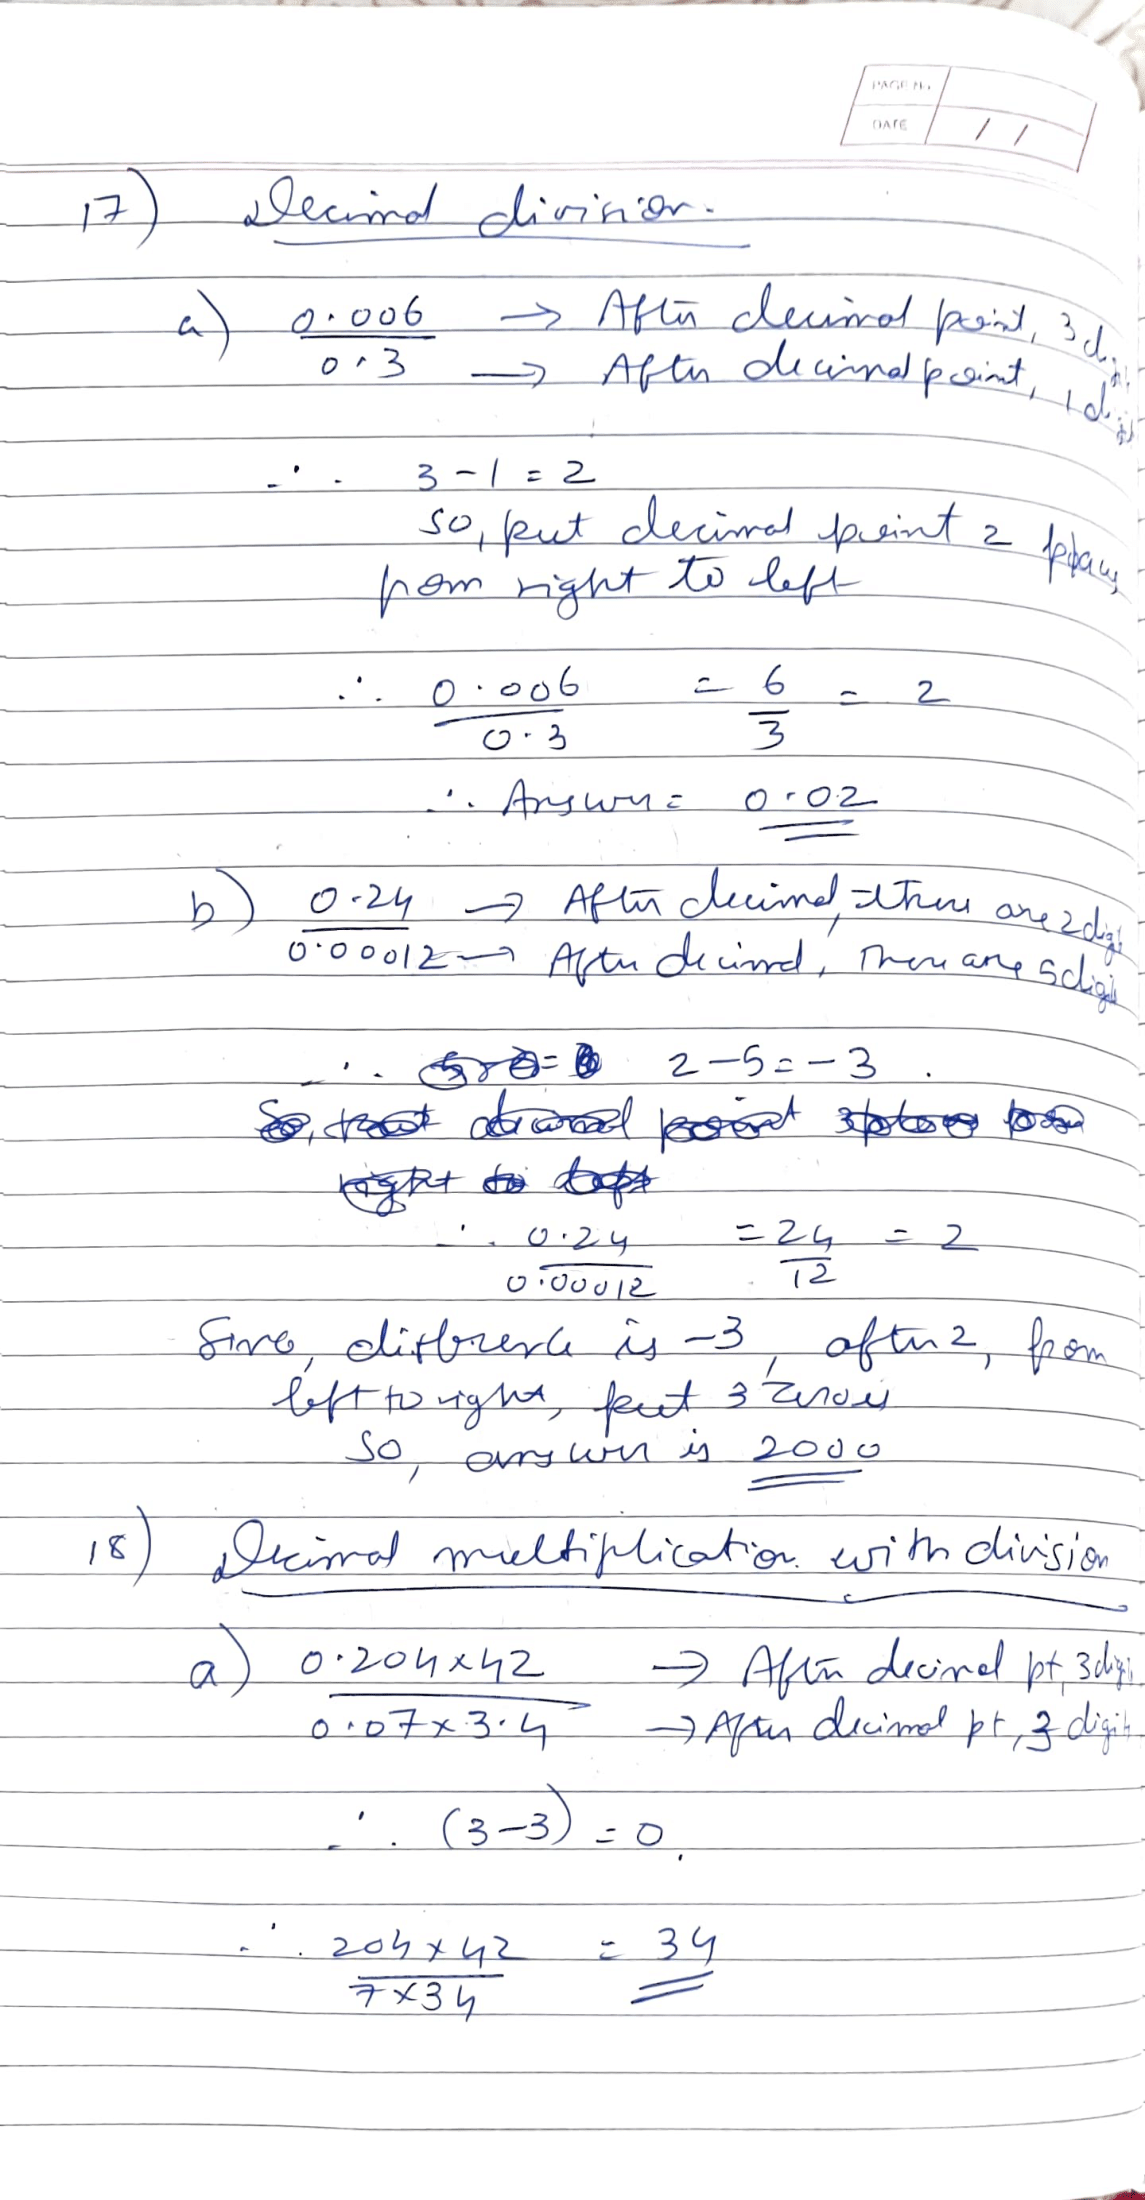 PAGE No.
DATE / /
17) Decimal division.
a) 0.006 → After decimal point, 3 digit
0.3 → After decimal point, 1 digit
∴ 3-1=2
so, put decimal point 2 places
from right to left
∴ 0.006 = 6 = 2
0.3 3
∴ Answer = 0.02
b) 0.24 → After decimal, there are 2 digit
0.00012 → After decimal, there are 5 digit
∴ 2-5=-3.
∴ 0.24 = 24 = 2
0.00012 12
Since, difference is -3, after 2, from
left to right, put 3 zeroes
So, answer is 2000
18) Decimal multiplication with division
a) 0.204x42 → After decimal pt, 3 digit
0.07x3.4 → After decimal pt, 3 digit
∴ (3-3) = 0.
∴ 204x42 = 34
7x34